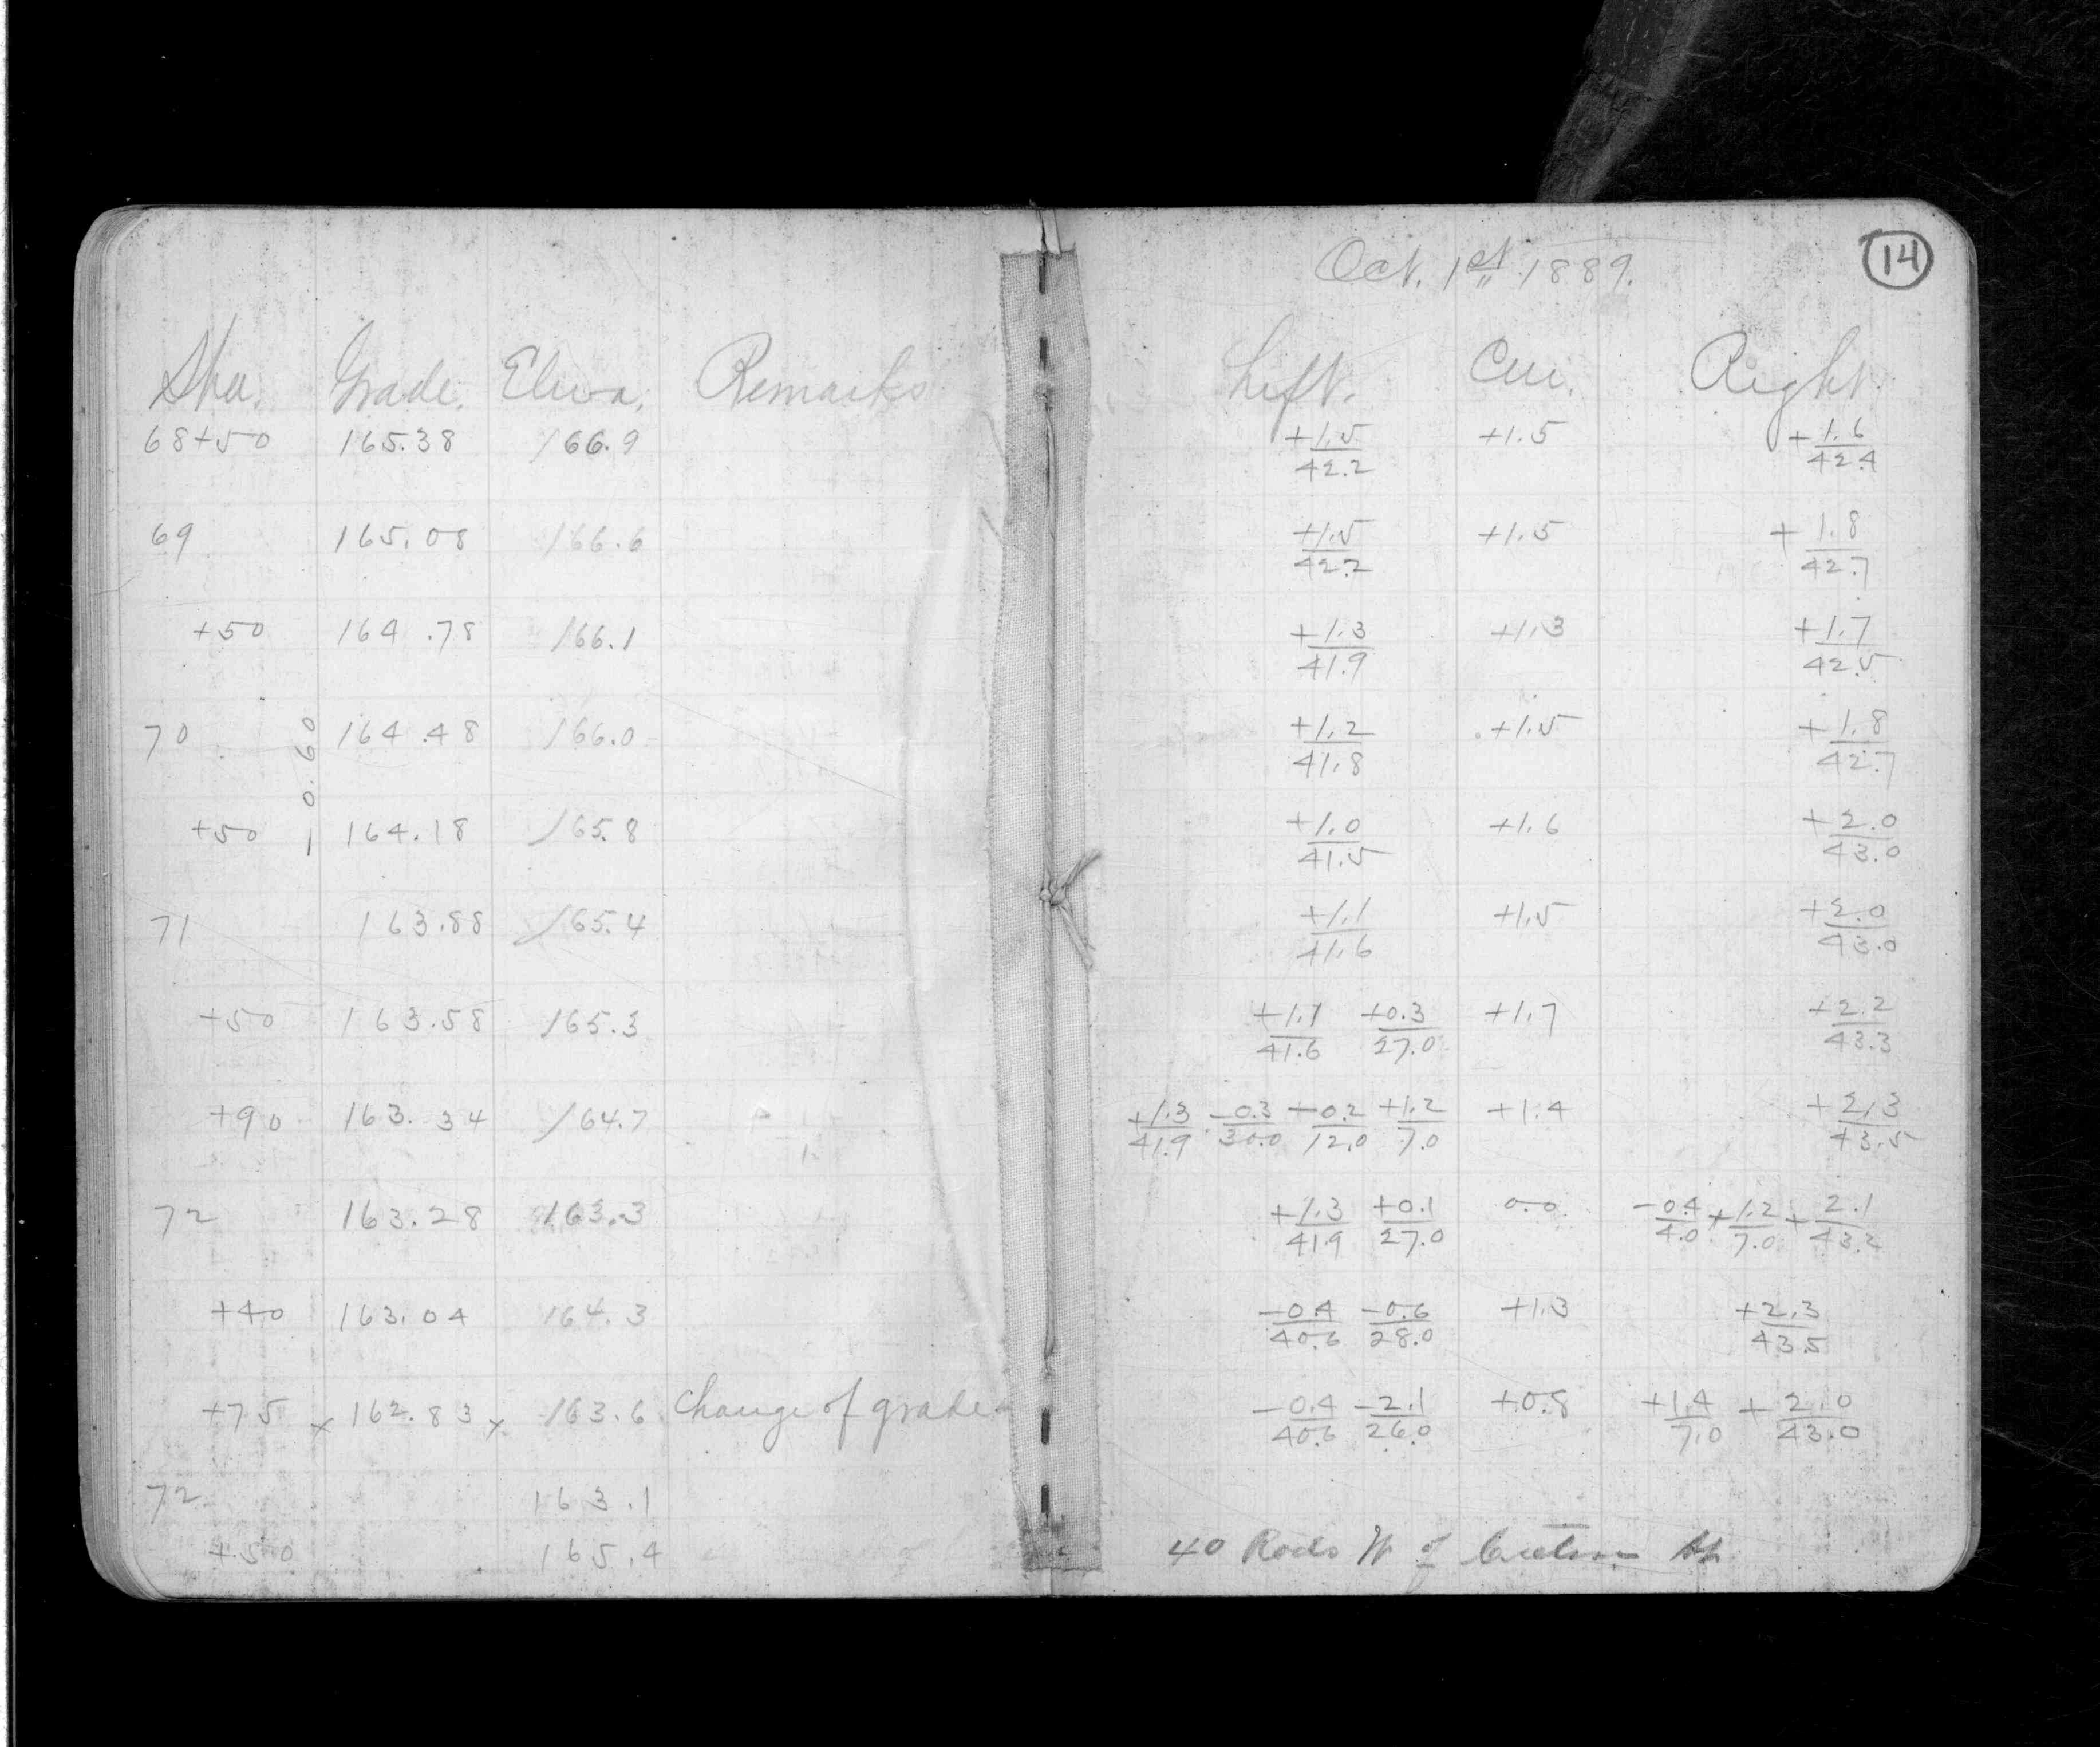 Oct. 1st 1889. 14
Sta. Grade. Eleva. Remarks Left. Cen. Right.
68+50 165.38 166.9 +1.5/42.2 +1.5 +1.6/42.4
69 165.08 166.6 +1.5/42.2 +1.5 +1.8/42.7
+50 164.78 166.1 +1.3/41.9 +1.3 +1.7/42.5
70 164.48 166.0 +1.2/41.8 +1.5 +1.8/42.7
- 0.60
+50 164.18 165.8 +1.0/41.5 +1.6 +2.0/43.0
71 163.88 165.4 +1.1/41.6 +1.5 +2.0/43.0
+50 163.58 165.3 +1.1/41.6 +0.3/27.0 +1.7 +2.2/43.3
+90 163.34 164.7 +1.3/41.9 -0.3/30.0 -0.2/12.0 +1.2/7.0 +1.4 +2.3/43.5
72 163.28 163.3 +1.3/41.9 +0.1/27.0 0.0 -0.4/4.0 +1.2/7.0 +2.1/43.2
+40 163.04 164.3 -0.4/40.6 -0.6/28.0 +1.3 +2.3/43.5
+75 x 162.83 x 163.6 Change of grade -0.4/40.6 -2.1/26.0 +0.8 +1.4/7.0 +2.0/43.0
72 163.1
+50 165.4 40 Rods W of